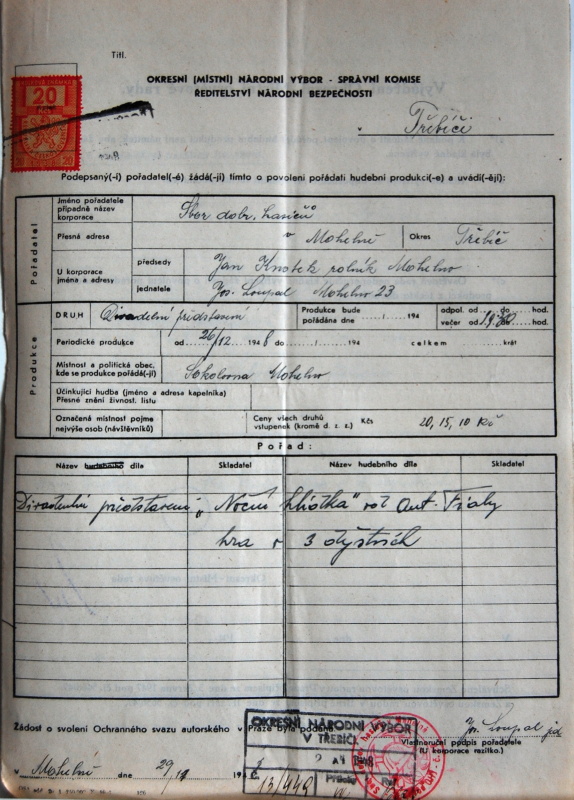 Titl.
20
20 20
OKRESNÍ (MÍSTNÍ) NÁRODNÍ VÝBOR - SPRÁVNÍ KOMISE
ŘEDITELSTVÍ NÁRODNÍ BEZPEČNOSTI
v Třebíči
Podepsaný(-í) pořadatel(-é) žádá(-jí) tímto o povolení pořádati hudební produkci(-e) a uvádí(-ějí):
Pořadatel
Jméno pořadatele případně název korporace Sbor dobr. hasičů
Přesná adresa v Mohelně Okres Třebíč
U korporace jména a adresy předsedy Jan Knotek rolník Mohelno
jednatele Jos. Loupal Mohelno 23
Produkce
DRUH Divadelní představení Produkce bude pořádána dne / 194 odpol. od do hod.
večer od do hod.
Periodické produkce od 26/12. 1948 do / 194 celkem krát
Místnost a politická obec, kde se produkce pořádá(-jí) Sokolovna Mohelno
Účinkující hudba (jméno a adresa kapelníka)
Přesné znění živnost. listu
Označená místnost pojme nejvýše osob (návštěvníků) Ceny všech druhů vstupenek (kromě d. z. z.) Kčs 20, 15, 10 Kč
Pořad:
Název hudebního díla Skladatel Název hudebního díla Skladatel
představení „Noční hlídka" od Ant. Fialy
hra o 3 dějstvích
Žádost o svolení Ochranného svazu autorského v Praze byla podána.
Jos. Loupal jed
Vlastnoruční podpis pořadatele
(U korporace razítko.)
OKRESNÍ NÁRODNÍ VÝBOR
V TŘEBÍČI
v Mohelně dne 29/11 194